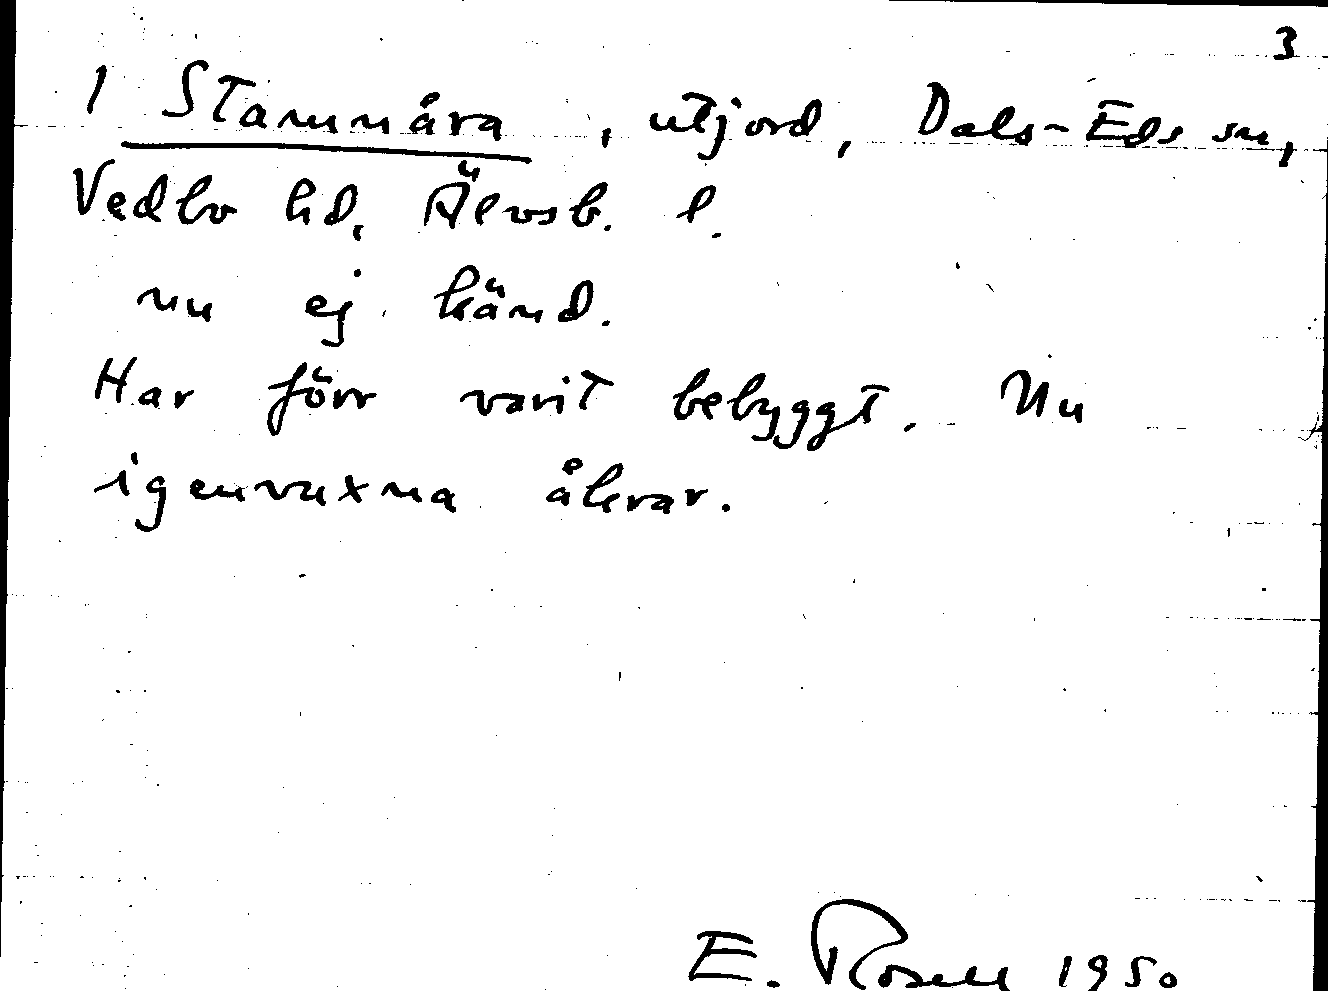 3
1 Stammåra, utjord, Dals-Eds sn,
Vedbo hd, Älvsb. l.
nu ej känd.
Har förr varit bebyggt. Nu
igenvuxna åkrar.
E. Rosell 1950